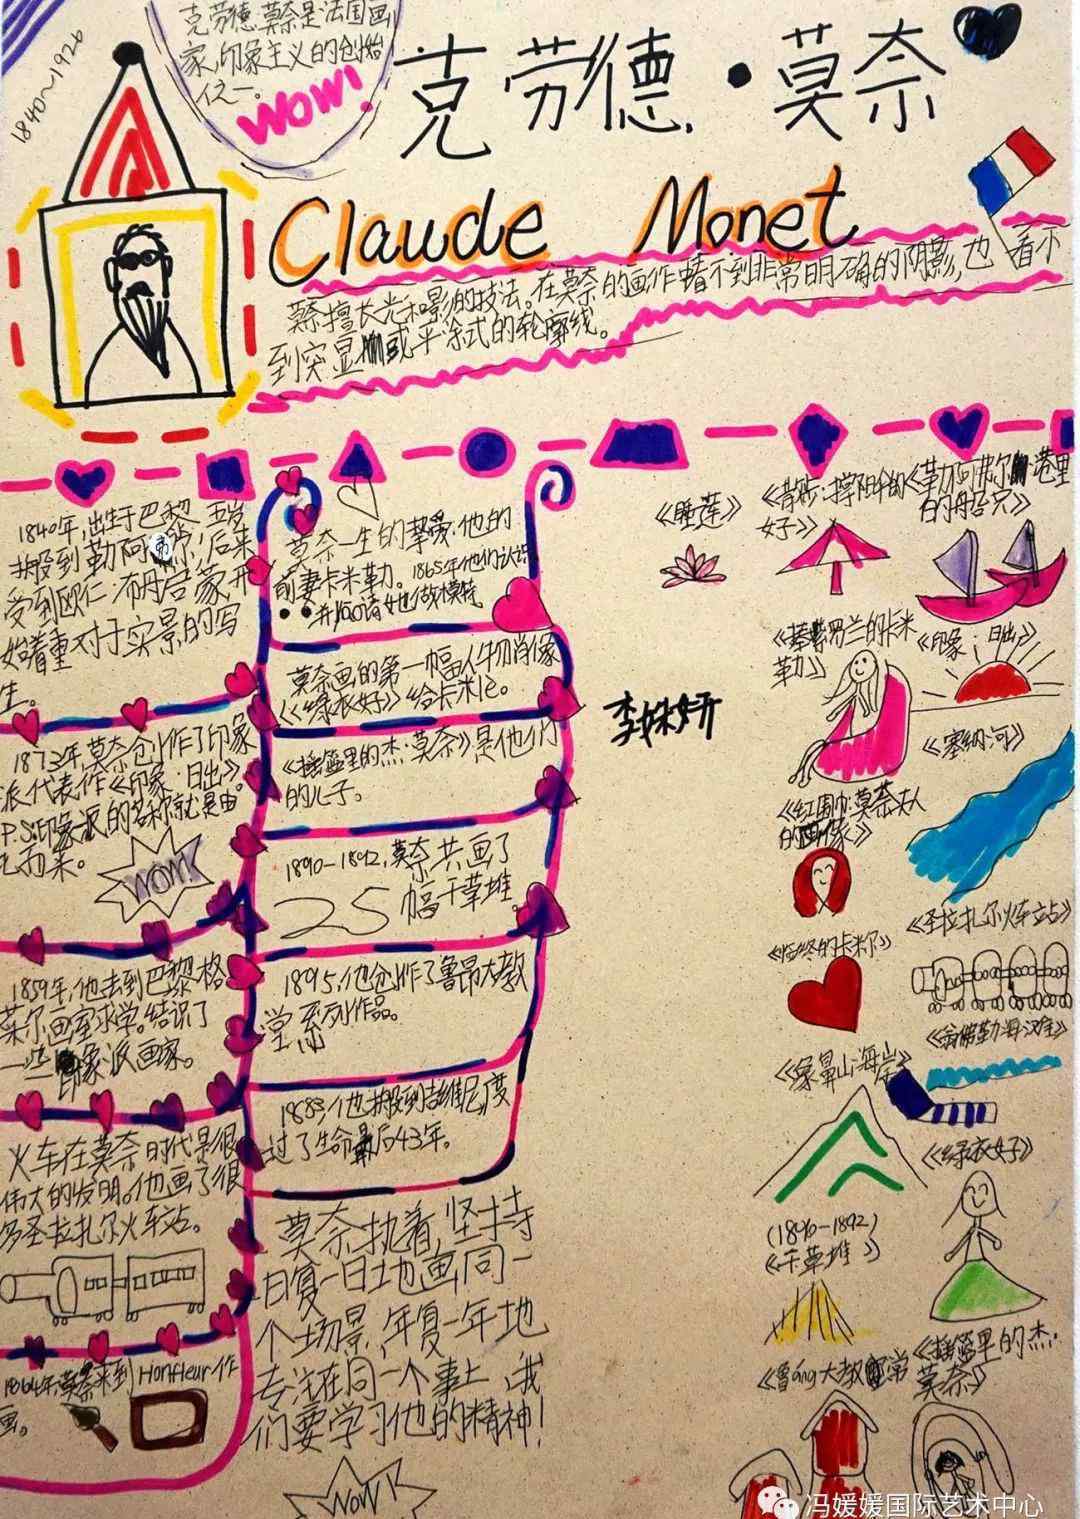 1840~1926
克劳德莫奈是法国画
家,印象主义的创始
人之一。
WOW!
克劳德·莫奈
Claude Monet
莫奈擅长光和影的技法。在莫奈的画作看不到非常明确的阴影,也看不
到突显或平涂式的轮廓线。
1840年,出生于巴黎,五岁
搬到勒阿弗尔,后来
受到欧仁·布丹启蒙开
始着重对于实景的写
生。
1873年,莫奈创作了印象
派代表作《印象·日出》。
P.S:印象派的名称就是由
而来。
WOW!
1859年,他去到巴黎格
莱尔画室求学。结识了
一些印象派画家。
火车在莫奈时代是很
伟大的发明。他画了很
多圣拉扎尔火车站。
1864年,莫奈来到Honfleur作
画。
莫奈一生的挚爱:他的
前妻卡米勒。1865年他们认识
并邀请她做模特
莫奈画的第一幅人物肖像
《绿衣女》给卡米尔。
《摇篮里的杰·莫奈》是他们
的儿子。
1890-1892,莫奈共画了
25幅干草堆。
1895,他创作了鲁昂大教
堂系列作品。
1883,他搬到吉维尼,度
过了生命最后43年。
莫奈执着,坚持
日复一日地画同一
个场景,年复一年地
专注在同一个事上,我
们要学习他的精神!
WOW
李姝妍
《睡莲》
《散步:撑阳伞的
女子》
《勒阿弗尔·港里
的船只》
《穿和兰的卡米
勒》
《印象·日出》
《塞纳河》
《红围巾:莫奈夫人
的画像》
《圣拉扎尔火车站》
《临终的卡米尔》
《翁佛勒海滨》
《象鼻山海岸》
《绿衣女》
(1890-1892)
《干草堆》
《摇篮里的杰·
莫奈》
《鲁áng大教堂》
冯媛媛国际艺术中心